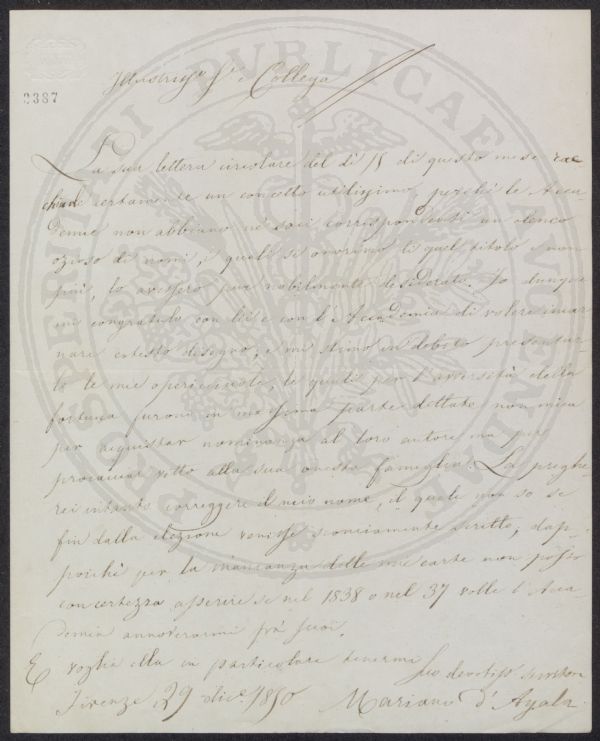 2387
Illustriss.º S.r e Collega
La sua lettera circolare del dì 15 di questo mese rac-
chiude certamente un concetto utilissimo, perché le Acca-
demie non abbiano ne' soci corrispondenti un elenco
ozioso di nomi, i quali si onorino di quel titolo e non
più, lo avessero pur nobilmente desiderato. Io dunque
mi congratulo con lei e con l'Accademia di volere incar-
nare cotesto disegno, e mi stimo in debito presentar-
le le mie opericciuole, le quali per l'avversità della
fortuna furono in massima parte dettate non mica
per acquistar nominanza al loro autore ma per
procacciar vitto alla sua onesta famiglia. La preghe-
rei intanto correggere il mio nome, il quale non so se
fin dalla elezione venisse sconciamente scritto, dap-
poiché per la mancanza delle mie carte non posso
con certezza asserire se nel 1838 o nel 37 volle l'Acca-
demia annoverarmi fra' suoi.
E voglia ella in particolare tenermi
Suo devotiss. servitore
Firenze, 29 dic.e 1850
Mariano d'Ayala
PROSPERITATI PVBLICAE AVGENDAE